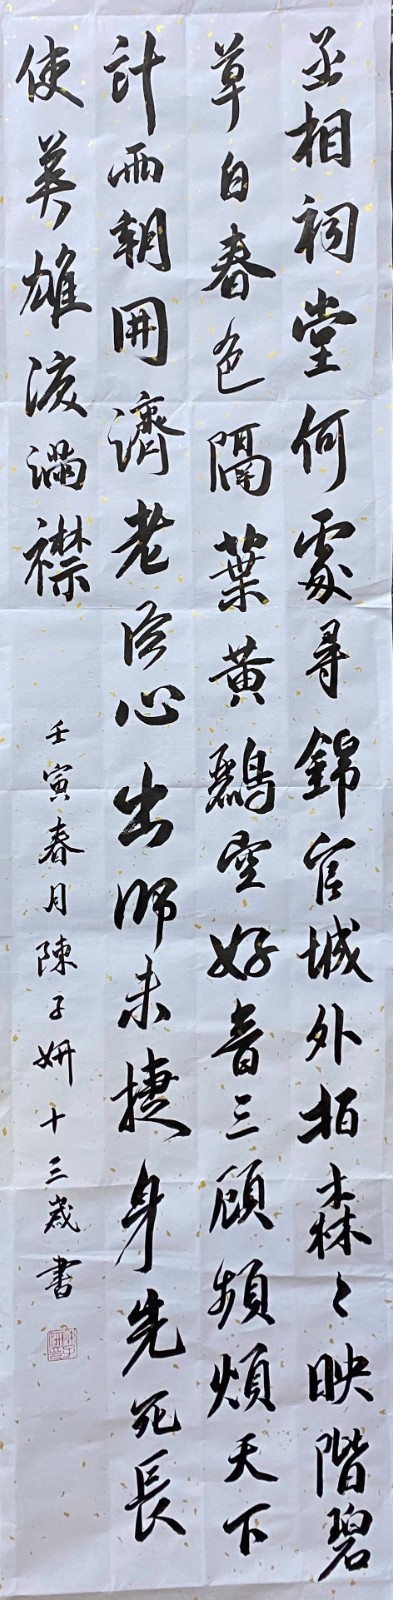 丞相祠堂何處尋錦官城外柏森々映階碧
草自春色隔葉黃鸝空好音三顧頻煩天下
計兩朝開濟老臣心出師未捷身先死長
使英雄淚滿襟
壬寅春月陳子妍十三歲書